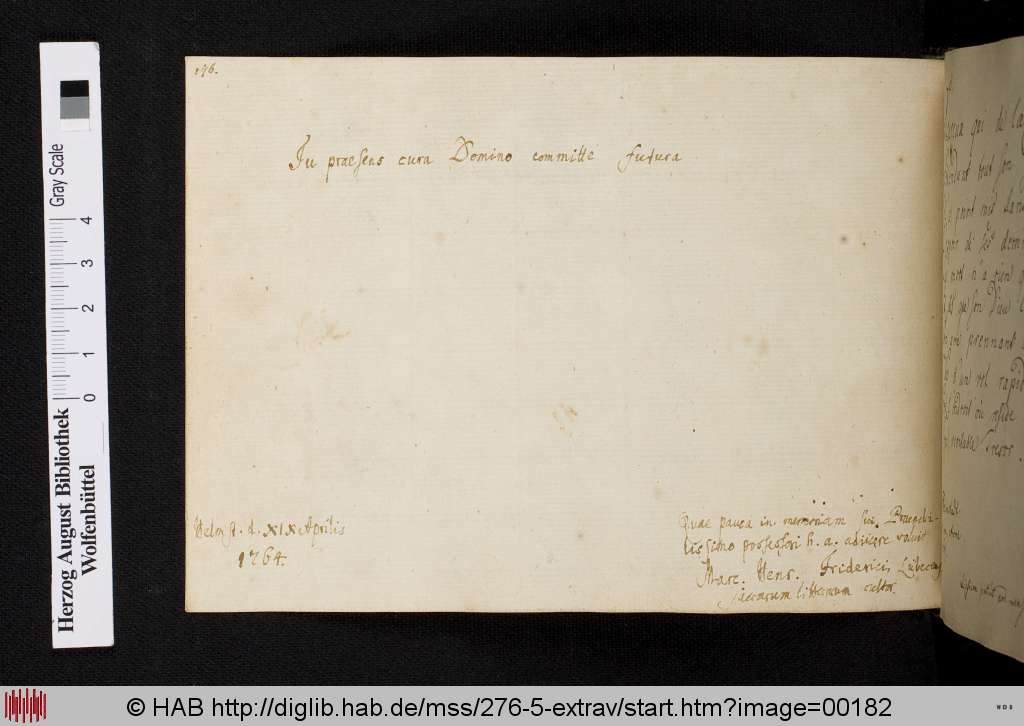 176.
Tu praesens cura Domino committe futura
Helmst. d. XIX Aprilis
1764.
Quae pauca in memoriam sui, Praenobi-
lissimo possessori h. a. adiicere voluit
Marc. Henr. Friderici, Lubecens
sacrarum litterarum cultor.
qui de la
tout son
prennant
d'un vol rapide
Tresor.
Herzog August Bibliothek
Wolfenbüttel
Gray Scale
0 1 2 3 4
© HAB http://diglib.hab.de/mss/276-5-extrav/start.htm?image=00182